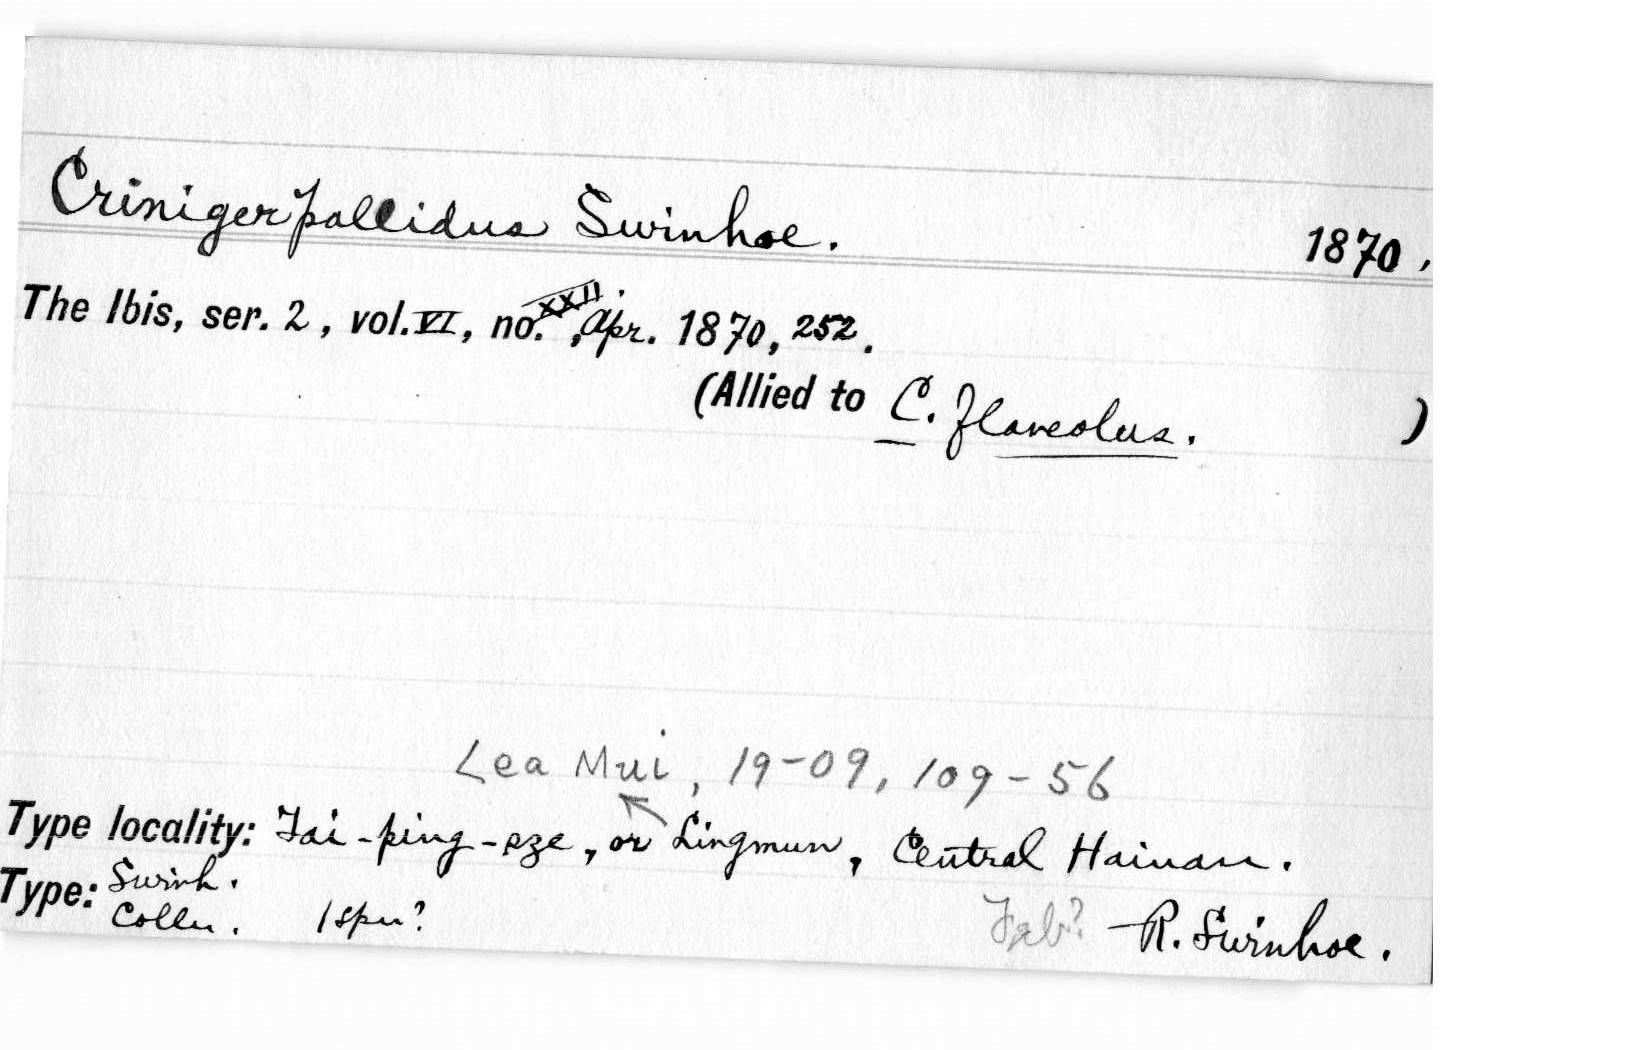 Criniger pallidus Swinhoe. 1870.
The Ibis, ser. 2, vol. VI, no. XXII., Apr. 1870, 252.
(Allied to C. flaveolus. )
Lea Mui, 19-09, 109-56
Type locality: Tai-ping-sze, or Lingmun, Central Hainan.
Type: Swinh.
Colln. 1 spn? Feb? R. Swinhoe.